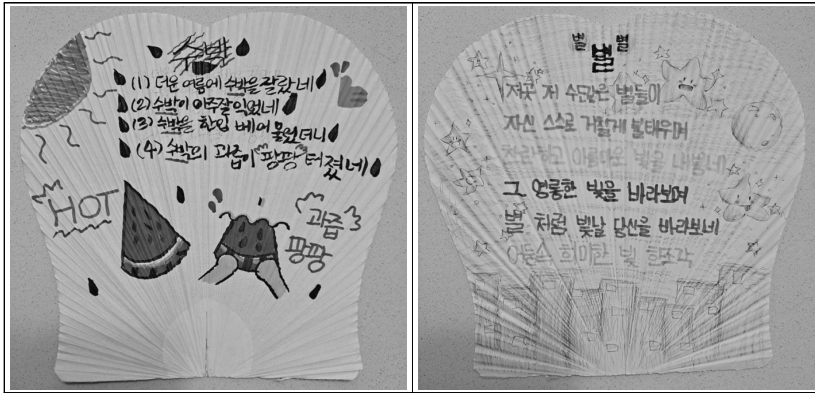 수박
(1) 더운 여름에 수박을 잘랐네
(2) 수박이 아주 잘 익었네
(3) 수박을 한입 베어 물었더니
(4) 수박의 과즙이 팡팡 터졌네
HOT
과즙
팡팡
별 별 별
저곳 저 수많은 별들이
자신 스스로 거칠게 불태우며
찬란하고 아름다운 빛을 내뿜네
그 영롱한 빛을 바라보며
별 처럼 빛날 당신을 바라보네
어둠속 희미한 빛 한조각